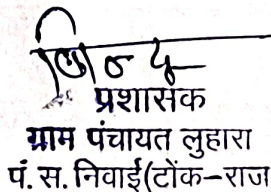 प्रशासक
ग्राम पंचायत लुहारा
पं. स. निवाई(टोंक-राज